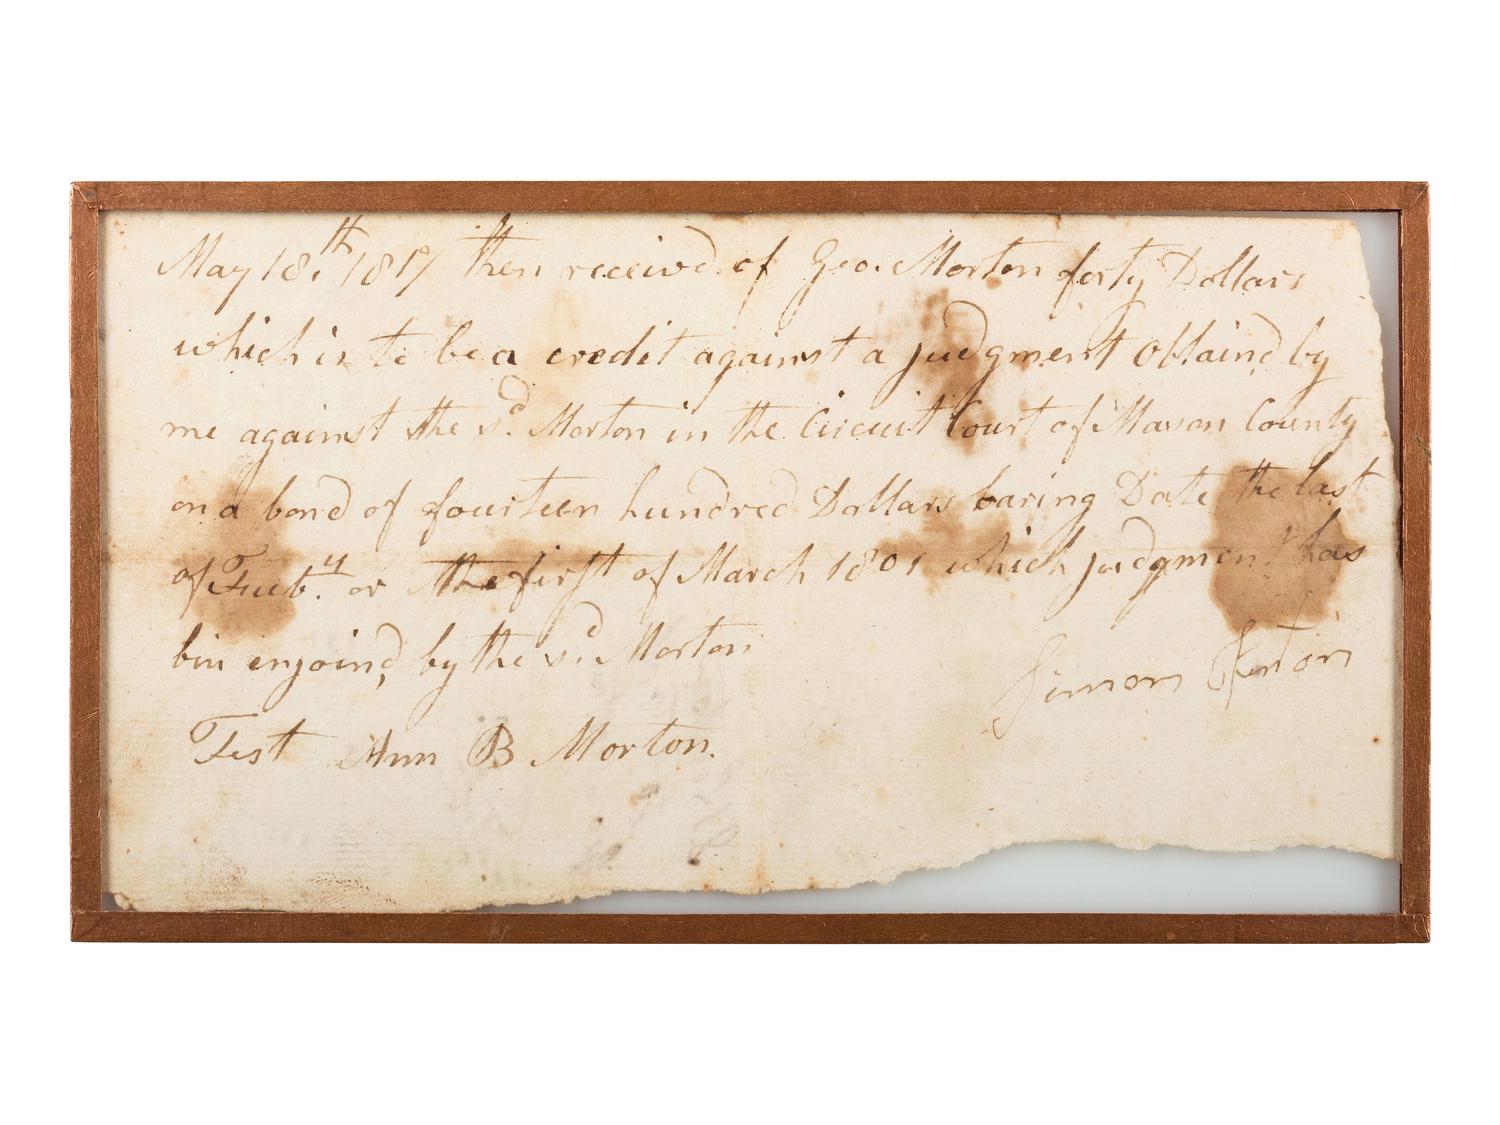 May 18.th 1817 then receivd of Geo. Morton forty Dollars
which is to be a credit against a judgment Obtaind by
me against the sd. Morton in the Circuit Court of Mason County
on a bond of fourteen hundred Dollars baring Date the last
of Feeb.y or the first of March 1801 which judgment has
bin enjoind, by the sd. Morton
Simon Kenton
Test Ann B Morton.